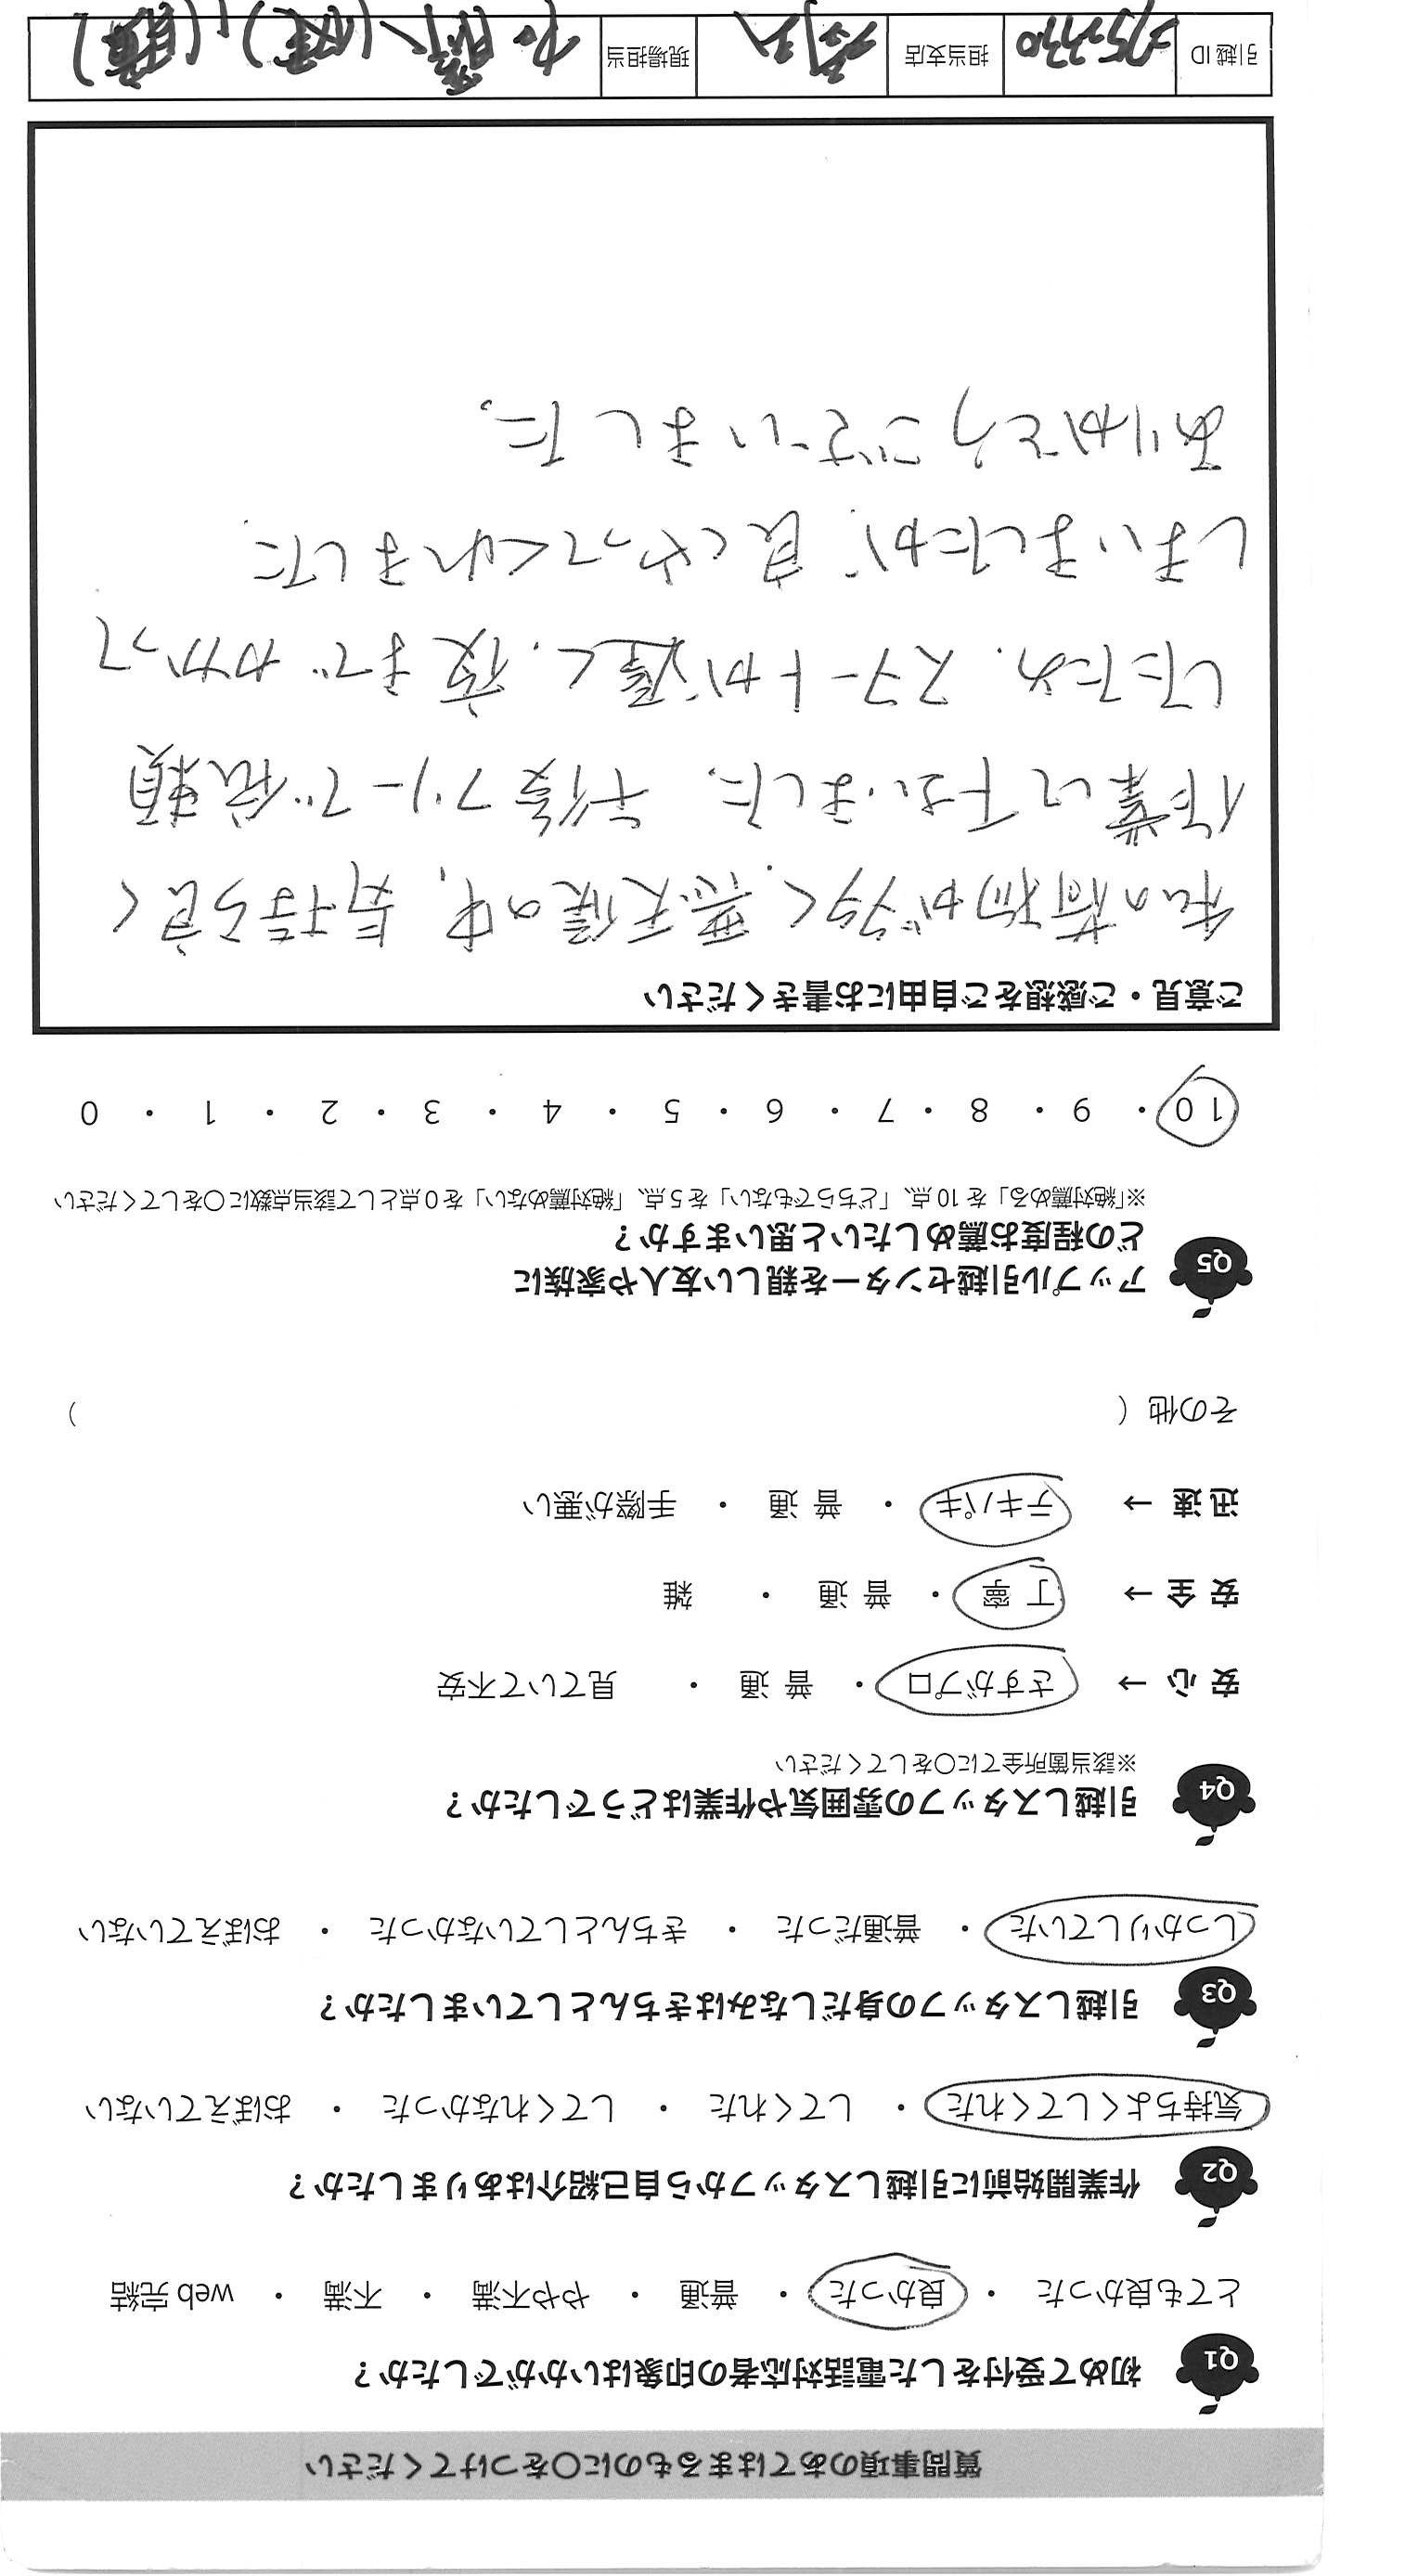 質問事項のあてはまるものに〇をつけてください
Q1 初めて受付をした電話対応者の印象はいかがでしたか？
とても良かった ・ 良かった ・ 普通 ・ やや不満 ・ 不満 ・ web 完結
Q2 作業開始前に引越しスタッフから自己紹介はありましたか？
気持ちよくしてくれた ・ してくれた ・ してくれなかった ・ おぼえていない
Q3 引越しスタッフの身だしなみはきちんとしていましたか？
しっかりしていた ・ 普通だった ・ きちんとしていなかった ・ おぼえていない
Q4 引越しスタッフの雰囲気や作業はどうでしたか？
※該当箇所全てに〇をしてください
安 心 → さすがプロ ・ 普 通 ・ 見ていて不安
安 全 → 丁 寧 ・ 普 通 ・ 雑
迅 速 → テキパキ ・ 普 通 ・ 手際が悪い
その他（ ）
Q5 アップル引越センターを親しい友人や家族に
どの程度お薦めしたいと思いますか？
※「絶対薦める」を 10 点、「どちらでもない」を 5 点、「絶対薦めない」を 0 点として該当点数に〇をしてください
10 ・ 9 ・ 8 ・ 7 ・ 6 ・ 5 ・ 4 ・ 3 ・ 2 ・ 1 ・ 0
ご意見・ご感想をご自由にお書きください
私の荷物が多く、悪天候の中、気持ち良く
作業して下さいました。午後フリーで依頼
したため、スタートが遅く、夜までかかって
しまいましたが、良くやってくれました。
ありがとうございました。
引越 ID 担当支店 現場担当